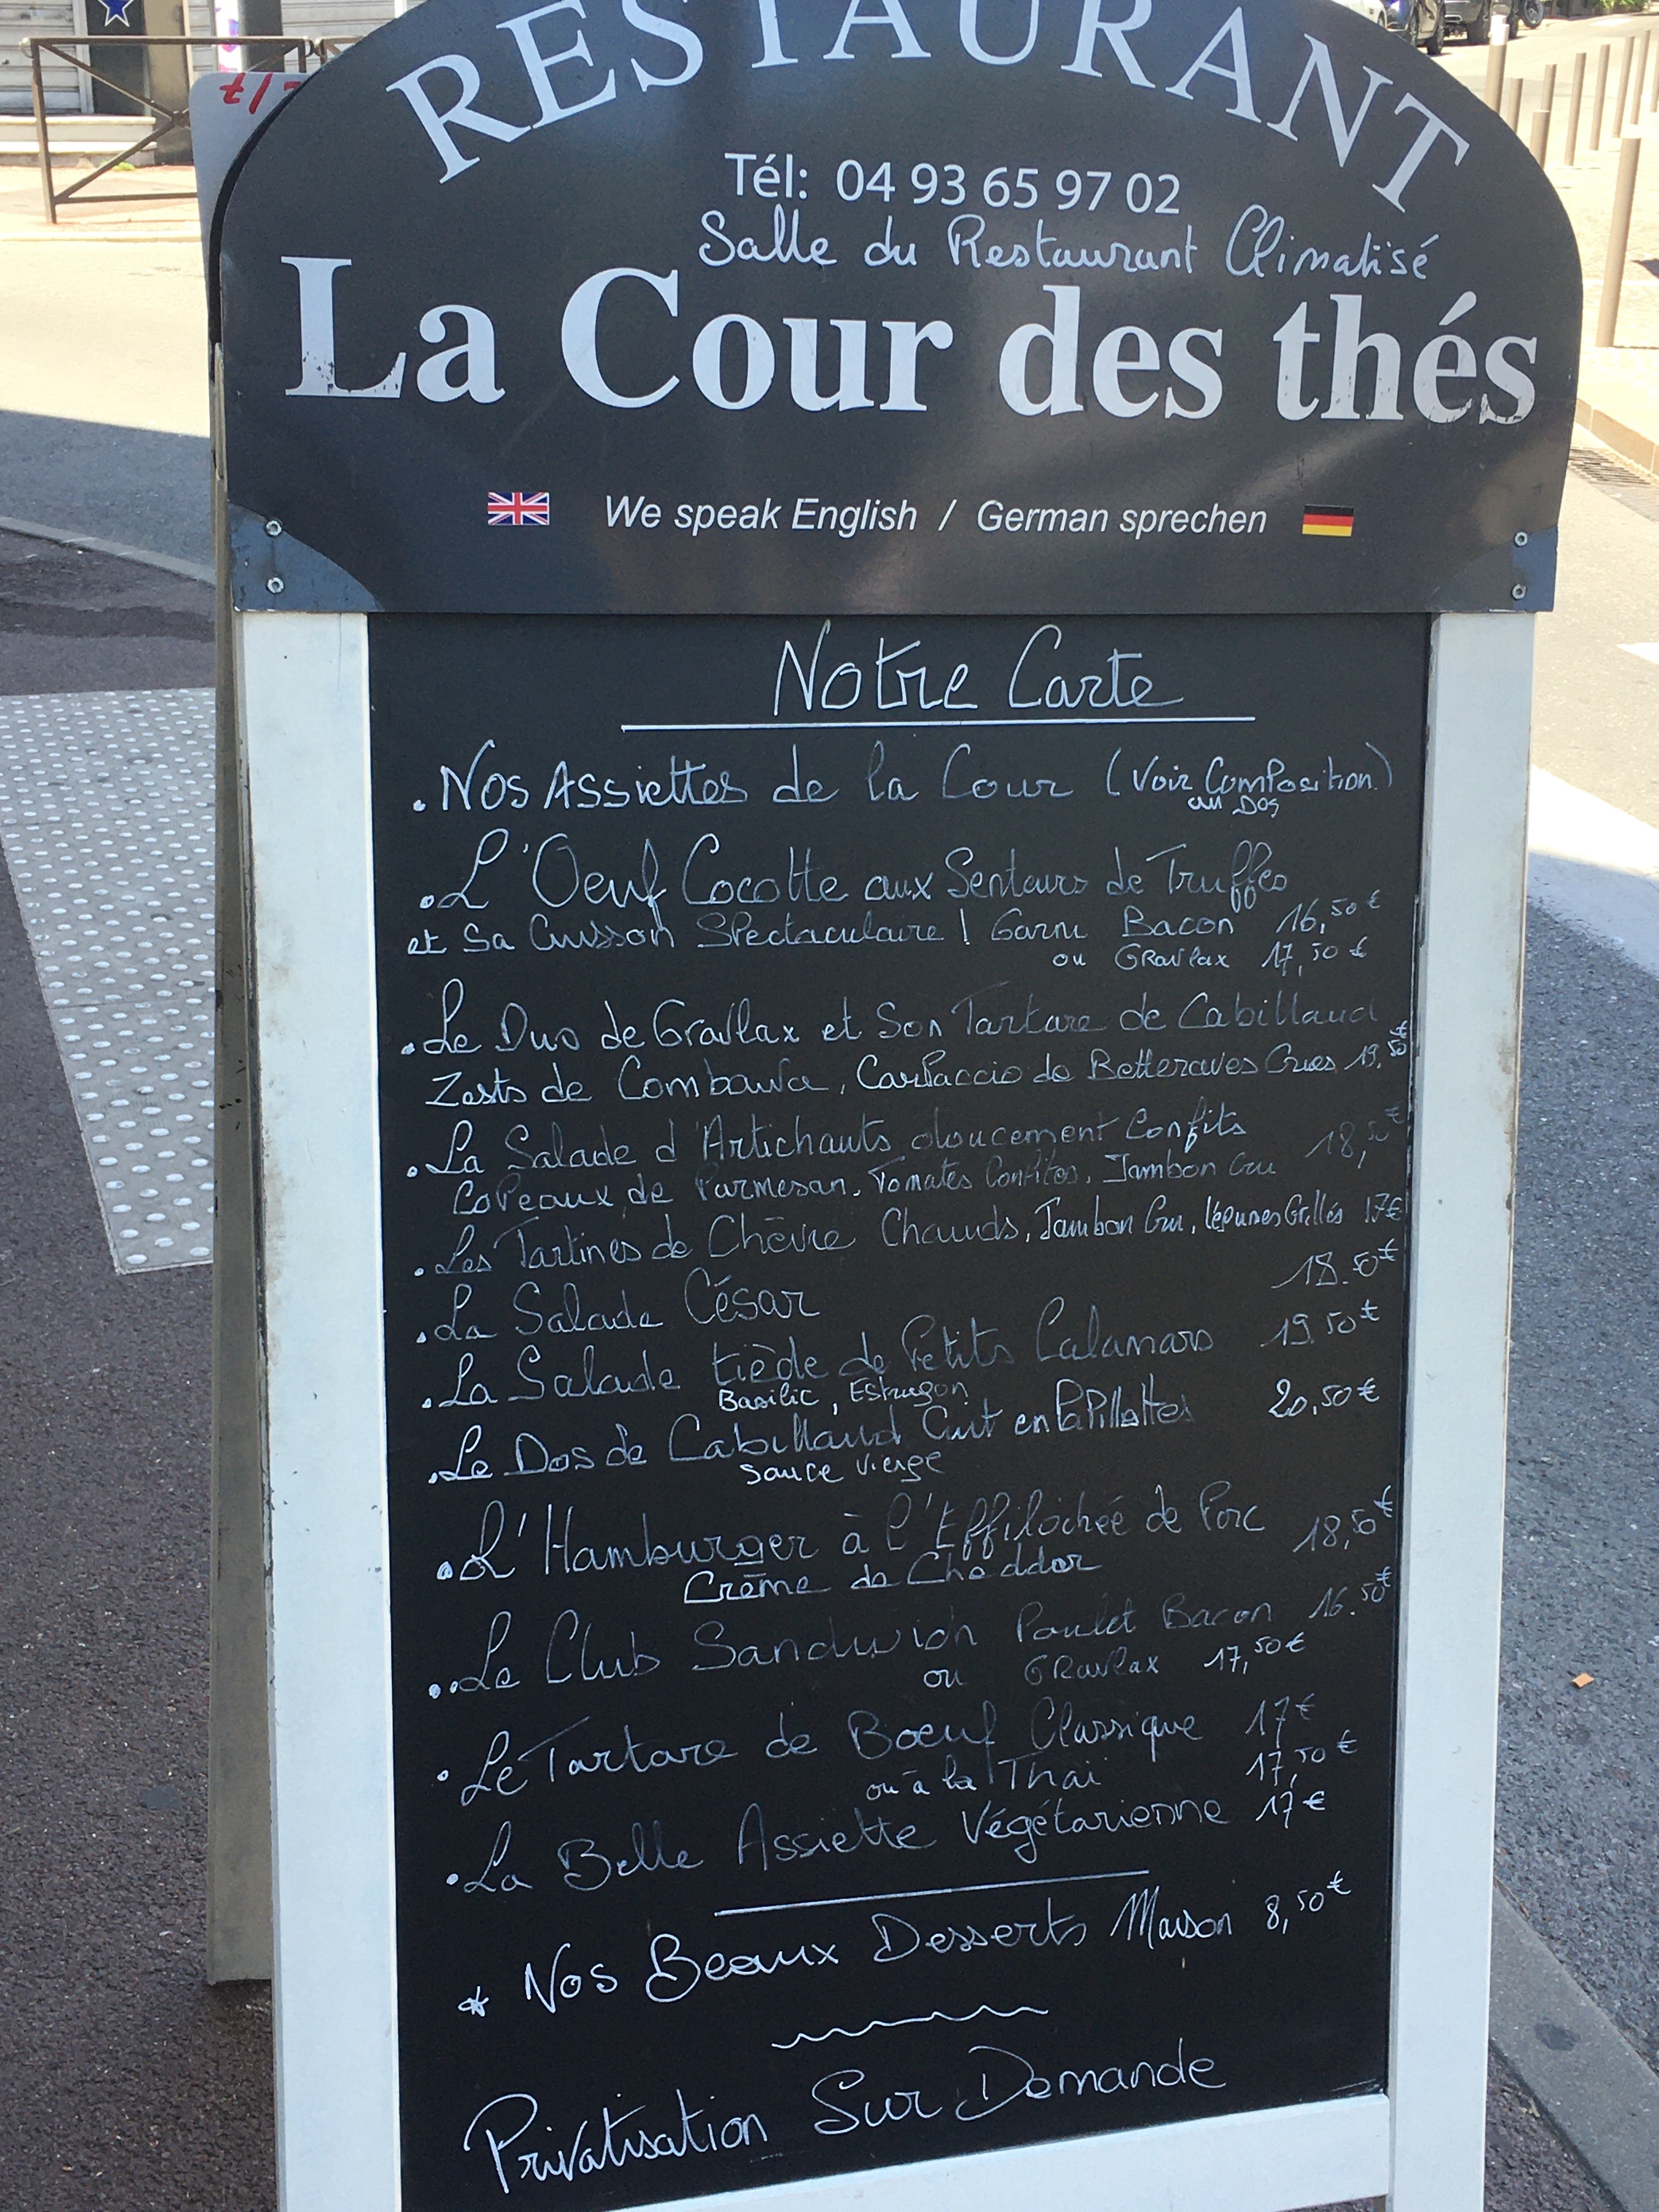 RESTAURANT
Tél: 04 93 65 97 02
Salle du Restaurant Climatisé
La Cour des thés
We speak English / German sprechen
Notre Carte
. Nos Assiettes de la Cour (Voir Composition)
au Dos
. L'Oeuf Cocotte aux Senteurs de Truffes
et Sa Cuisson Spectaculaire ! Garni Bacon 16,50€
ou Gravlax 17,50€
. Le Duo de Gravlax et Son Tartare de Cabillaud
Zests de Combawa, Carpaccio de Betteraves Crues 19,50€
. La Salade d'Artichauts doucement Confits 18,50€
Copeaux de Parmesan, Tomates Confites, Jambon Cru
. Les Tartines de Chèvre Chauds, Jambon Cru, légumes Grillés 17€
. La Salade César 18.50€
. La Salade tiède de Petits Calamars 19.50€
Basilic, Estragon
. Le Dos de Cabillaud Cuit en Papillottes 20,50€
Sauce Vierge
. L'Hamburger à l'Effilochée de Porc 18,50€
Crème de Cheddar
.. Le Club Sandwich Poulet Bacon 16.50€
ou Gravlax 17,50€
. Le Tartare de Boeuf Classique 17€
ou à la Thaï 17,50€
. La Belle Assiette Végétarienne 17€
* Nos Beaux Desserts Maison 8,50€
Privatisation Sur Demande